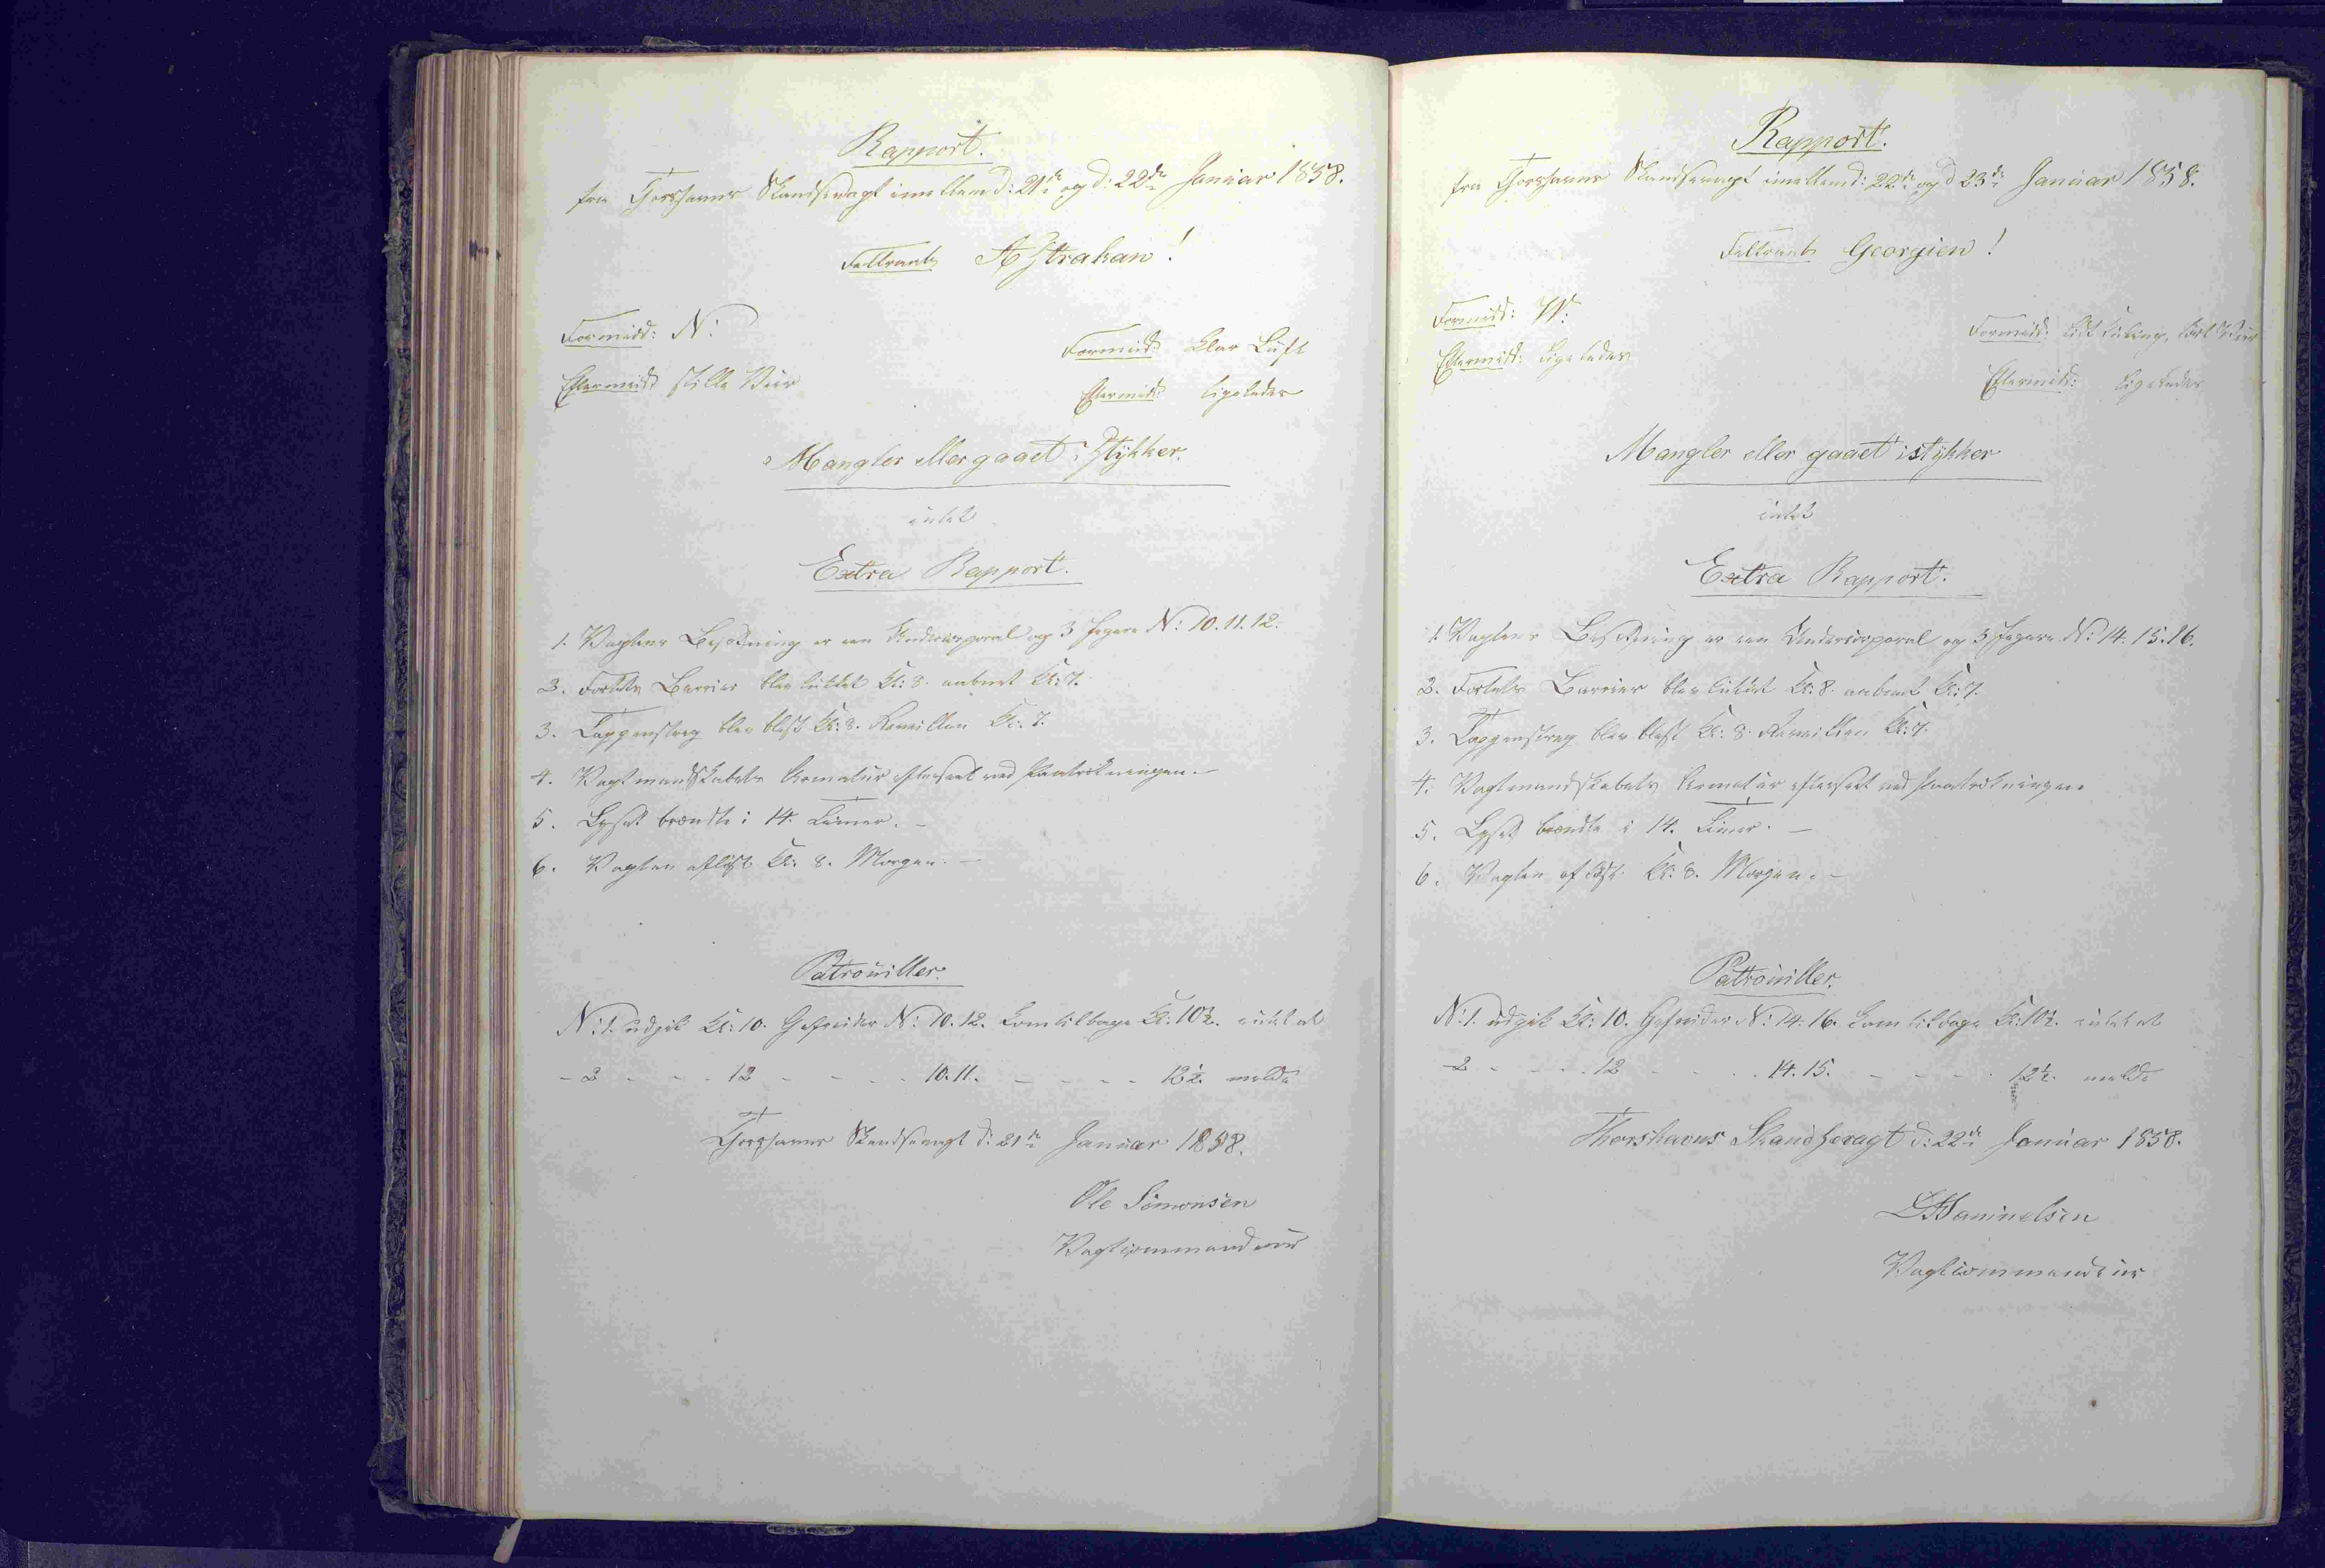 Rapport.
fra Thorshavns Skandsevagt imellem d: 21de og d: 22de Januar 1858.
Feltraab Astrakan!
Formidd: N:
Eftermidd: stille Veir
Formidd: klar Luft
Eftermidd: ligeledes
Mangler eller gaaet i Stykker.
intet
Extra Rapport.
1. Vagtens Besætning er een Undercorporal og 3 Jægere N: 10. 11. 12.
2. Fortets Barrier blev lukket Kl: 8. aabnet Kl: 7.
3. Tappenstreg blev blæst Kl: 8. Reveillen Kl: 7.
4. Vagtmandskabets Armatur efterseet ved Paatrækningen. –
5. Lyset brændte i 14. Timer. –
6. Vagten afløst Kl: 8. Morgen. –
Patrouiller.
N: 1. udgik Kl: 10. Gefreider N: 10. 12. kom tilbage Kl: 10½. intet at
- 2 - - - 12 - - - - 10. 11. - - - - - 12½. melde
Thorshavns Skandsevagt d: 21de Januar 1858.
Ole Simonsen
Vagtcommandeur
Rapport.
fra Thorshavns Skandsevagt imellem d: 22de og d 23de Januar 1858.
Feltraab Georgien!
Formidd: W:
Eftermidd: ligeledes
Formidd: lidt Kuling, tørt Veir
Eftermidd: ligeledes
Mangler eller gaaet istykker
intet
Extra Rapport.
1. Vagtens Besætning er een Undercorporal og 3 Jægere N: 14. 15. 16.
2. Fortets Barrier blev lukket Kl: 8. aabnet Kl: 7.
3. Tappenstreg blev blæst Kl: 8. Reveillen Kl: 7.
4. Vagtmandskabets Armatur efterseet ved Paatrækningen.
5. Lyset brændte i 14. Timer. –
6. Vagten afløst Kl: 8. Morgen. –
Patrouiller.
N: 1. udgik Kl: 10. Gefreider N: 14. 16. kom tilbage Kl: 10½. intet at
- 2 - - - 12 - - - - 14. 15. - - - - - 12½. melde
Thorshavns Skandsevagt d: 22de Januar 1858.
Vagtcommandeur